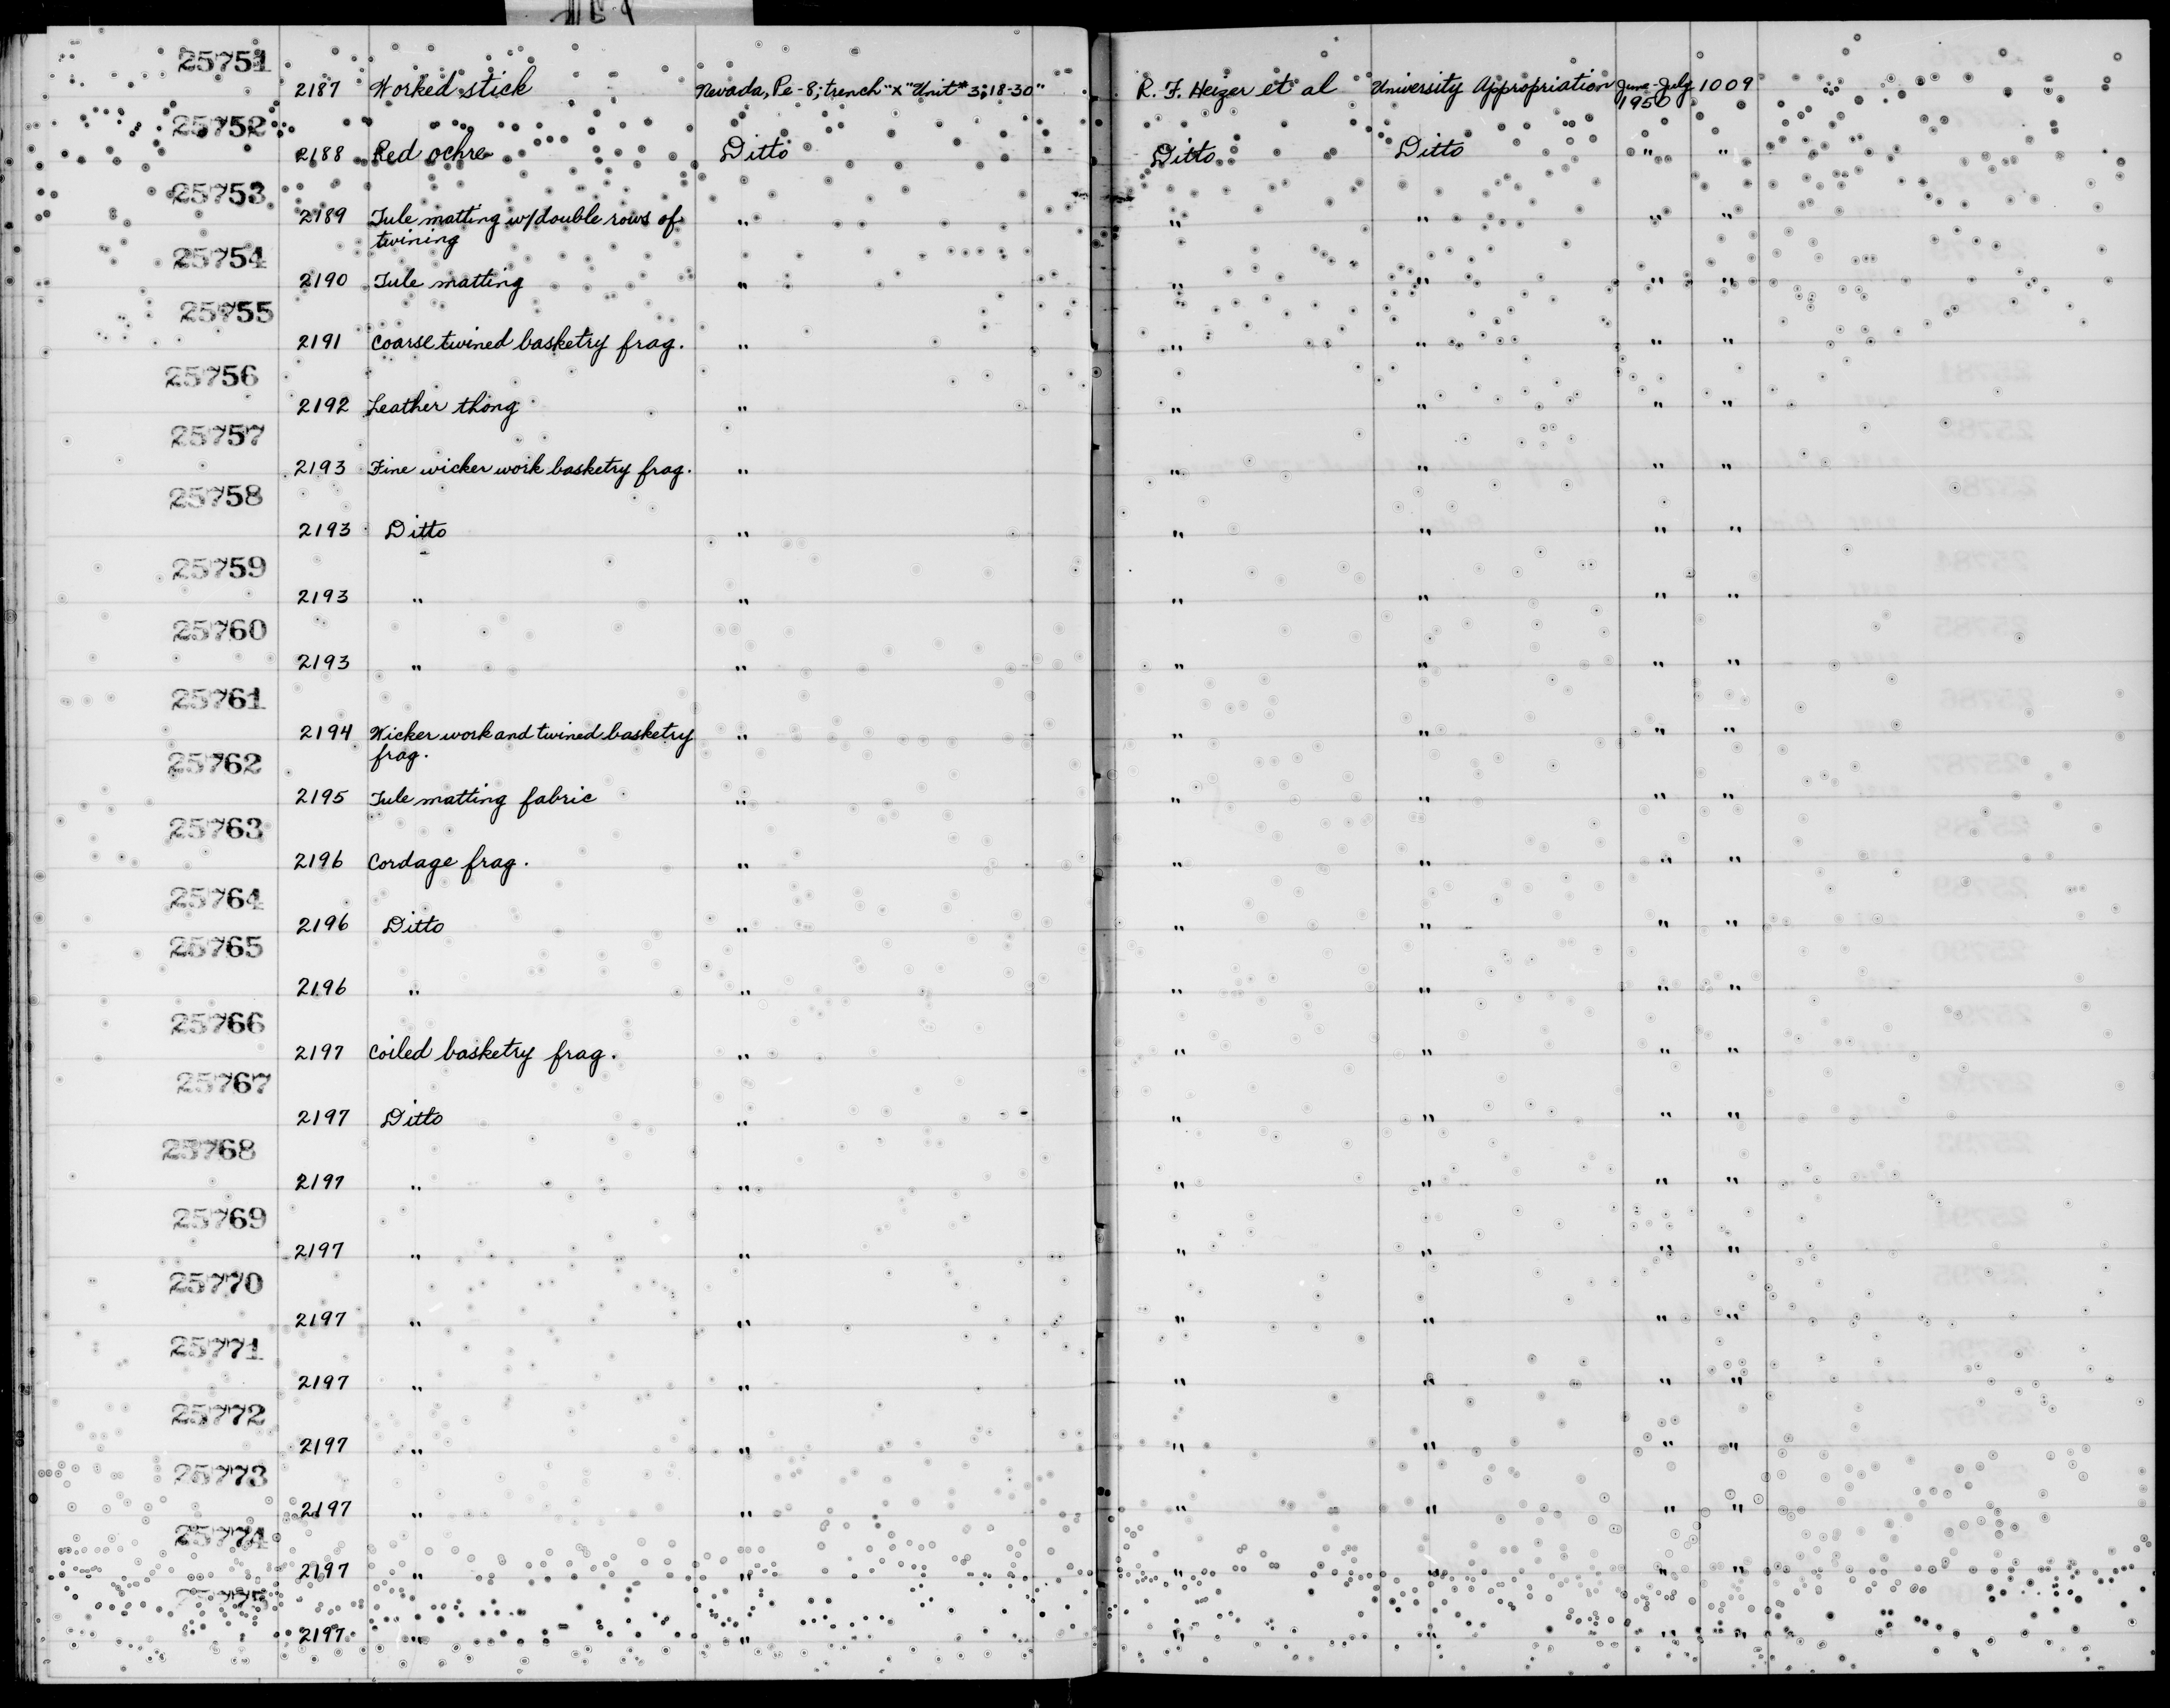 25751
2187 Worked stick Nevada, Pe-8; trench "x" Unit # 3; 18-30" R. F. Heizer et al University Appropriation June-July 1009
1950
25752
2188 Red ochre Ditto Ditto Ditto " "
25753
2189 Tule matting w/double rows of " " " " "
twining
25754
2190 Tule matting " " " " "
25755
2191 Coarse twined basketry frag. " " " " "
25756
2192 Leather thong " " " " "
25757
2193 Fine wicker work basketry frag. " " " " "
25758
2193 Ditto " " " " "
25759
2193 " " " " " "
25760
2193 " " " " " "
25761
2194 Wicker work and twined basketry " " " " "
frag.
25762
2195 Tule matting fabric " " " " "
25763
2196 Cordage frag. " " " " "
25764
2196 Ditto " " " " "
25765
2196 " " " " " "
25766
2197 Coiled basketry frag. " " " " "
25767
2197 Ditto " " " " "
25768
2197 " " " " " "
25769
2197 " " " " " "
25770
2197 " " " " " "
25771
2197 " " " " " "
25772
2197 " " " " " "
25773
2197 " " " " " "
25774
2197 " " " " " "
25775
2197 " " " " " "